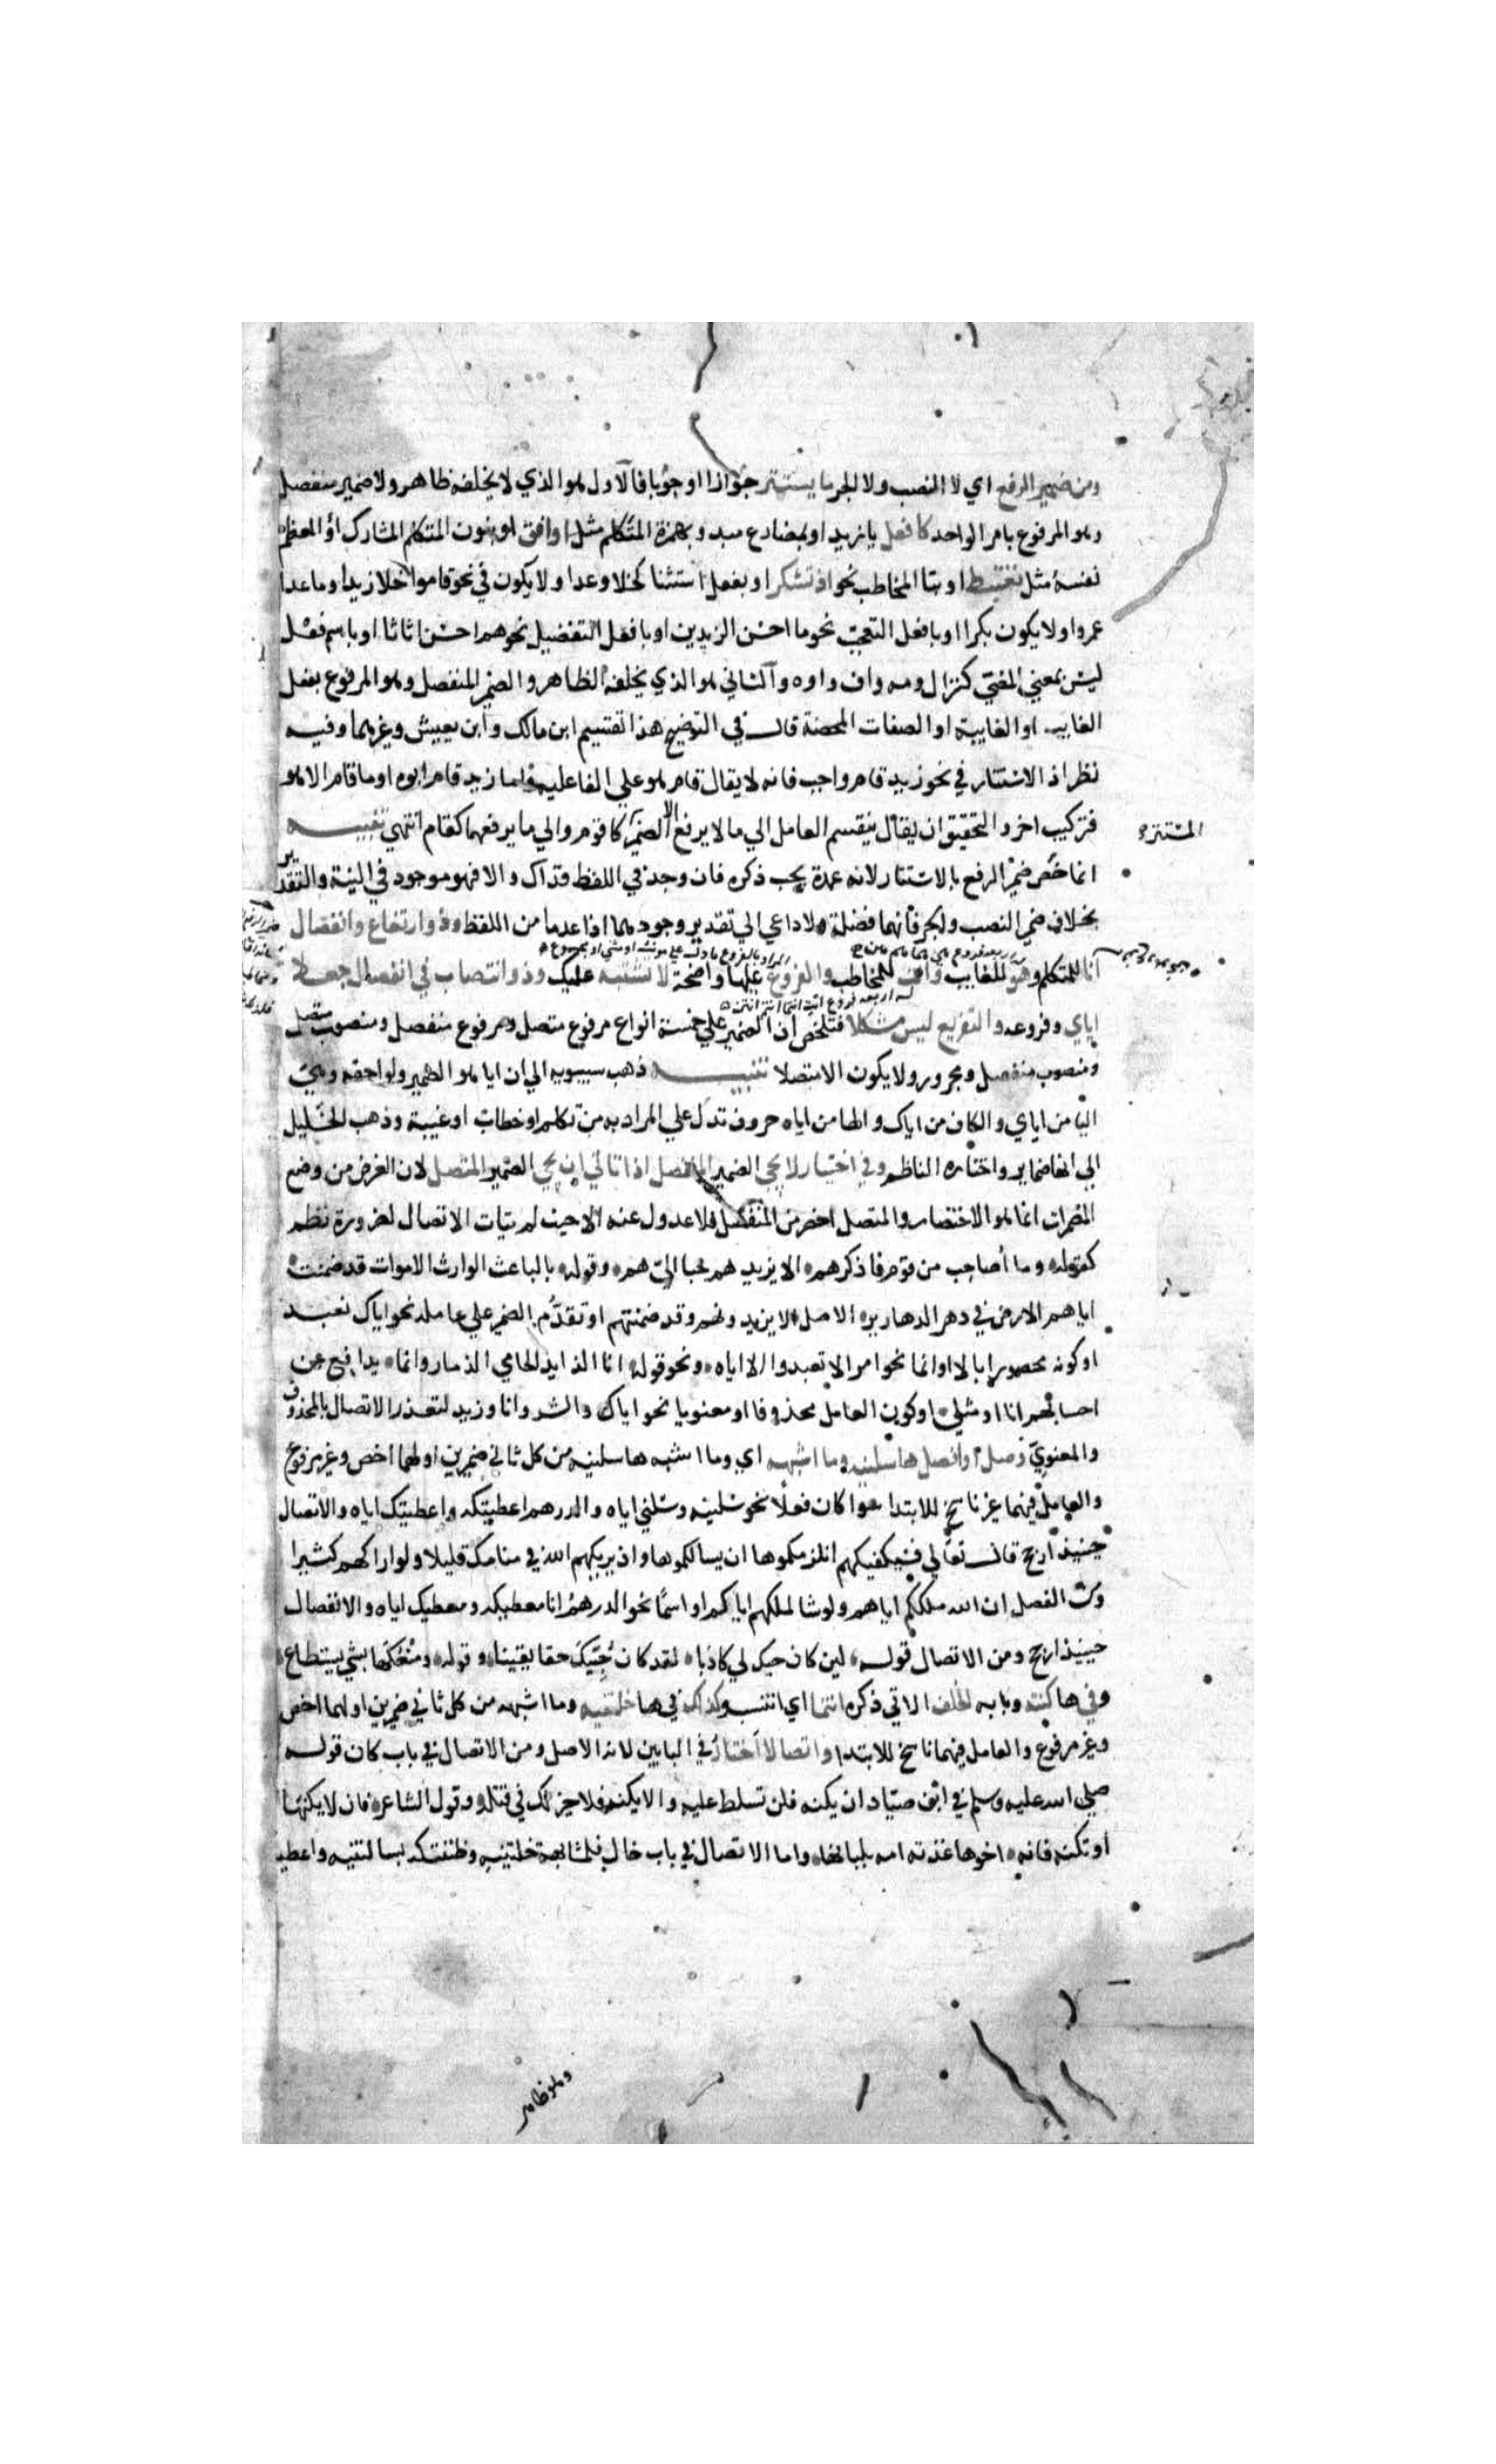 ومن ضمير الرفع اي لا النصب ولا الجر ما يستتر جوازا او وجوبا فالاول هو الذي لا يخلفه ظاهر ولا ضمير منفصل
وهو المرفوع بامر الواحد كافعل يا زيد او بمضارع مبدو بهمزة المتكلم مثل اوافق او بنون المتكلم المشارك او المعظم
نفسه مثل نغتبط او بتا المخاطب نحو اذ تشكر او بفعل استثنا كخلا وعدا ولا يكون في نحو قاموا خلا زيدا وما عدا
عمرا ولا يكون بكرا او بافعل التعجب نحو ما احسن الزيدين او بافعل التفضيل نحو هم احسن اثاثا او باسم فعل
ليس بمعني المضي كنزال ومه واف واوه والثاني هو الذي يخلفه الظاهر والضمير المنفصل وهو المرفوع بفعل
الغايب او الغايبة او الصفات المحضة قال في التوضيح هذا تقسيم ابن مالك وابن يعيش وغيرهما وفيه
نظر اذ الاستتار في نحو زيد قام واجب فانه لا يقال قام هو علي الفاعلية فاما زيد قام ابوه او ما قام الا هو
فتركيب اخر والتحقيق ان يقال ينقسم العامل الي ما لا يرفع الا الضمير كاقوم والي ما يرفعهما كقام انتهي تنبيه
المستتر
انما خص ضمير الرفع بالاستتار لانه عمدة يجب ذكره فان وجد في اللفظ فذاك والا فهو موجود في النية والتقدير
بخلاف ضمير النصب والجر فانهما فضلة ولا داعي الي تقدير وجودهما اذا عدما من اللفظ وذو ارتفاع وانفصال
المراد بالفروع ما دل علي مونث او مثني او مجموع
انا للمتكلم وهو للغايب وانت للمخاطب والفروع عليها واضحة لا تشتبه عليك وذو انتصاب في انفصال جعلا
له اربعه فروع انت انتما انتم انتن
اياي وفروعه والتفريع ليس مشكلا فتلخص ان الضمير علي خمسة انواع مرفوع متصل ومرفوع منفصل ومنصوب متصل
ومنصوب منفصل ومجرور ولا يكون الا متصلا تنبيه ذهب سيبويه الي ان ايا هو الضمير ولواحقه وهي
اليا من اياي والكاف من اياك والها من اياه حروف تدل علي المراد به من تكلم او خطاب او غيبة وذهب الخليل
الي انها ضماير واختاره الناظم وفي اختيار لا يجي الضمير المنفصل اذا تاتي ان يجي الضمير المتصل لان الغرض من وضع
المضمرات انما هو الاختصار والمتصل اخصر من المنفصل فلا عدول عنه الا حيث لم يتات الاتصال لضرورة نظم
كقوله وما أصاحب من قوم فاذكرهم الا يزيدهم حبا الي هم وقوله بالباعث الوارث الاموات قد ضمنت
اياهم الارض في دهر الدهارير الاصل الا يزيدونهم وقد ضمنتهم او تقدم الضمير علي عامله نحو اياك نعبد
او كونه محصورا بالا او انما نحو امر الا تعبدوا الا اياه ونحو قوله انا الذايد الحامي الذمار وانما يدافع عن
احسابهم انا او مثلي او كون العامل محذوفا او معنويا نحو اياك والشر وانا وزيد لتعذر الاتصال بالمحذوف
والمعنوي وصل او افصل ها سلنيه وما اشبهه اي وما اشبه ها سلنيه من كل ثاني ضميرين اولهما اخص وغير مرفوع
والعامل فيهما غير ناسخ للابتدا سوا كان فعلا نحو سلنيه وسلني اياه والدرهم اعطيتكه واعطيتك اياه والاتصال
حينيذ ارجح قال تعالي فسيكفيكهم انلزمكموها ان يسالكموها واذ يريكهم الله في منامك قليلا ولو اراكهم كثيرا
ومن الفصل ان الله ملككم اياهم ولو شا لملكهم اياكم او اسما نحو الدرهم انا معطيكه ومعطيك اياه والانفصال
حينيذ ارجح ومن الاتصال قوله لين كان حبك لي كاذبا لقد كان حبيك حقا يقينا وقوله ومنعكها بشي يستطاع
وفي ها كنته وبابه الخلف الاتي ذكره انتما اي انتسب وكذاك في ها خلتنيه وما اشبهه من كل ثاني ضميرين اولهما اخص
وغير مرفوع والعامل فيهما ناسخ للابتدا واتصالا اختار في البابين لانه الاصل ومن الاتصال في باب كان قوله
صلي الله عليه وسلم في ابن صياد ان يكنه فلن تسلط عليه والا يكنه فلا خير لك في قتله وقول الشاعر فان لا يكنها
او تكنه فانه اخوها غذته امه بلبانها واما الاتصال في باب خال فلمشابهة خلتنيه وظننتكه بسالتنيه واعطيـ
وهو ظاهر